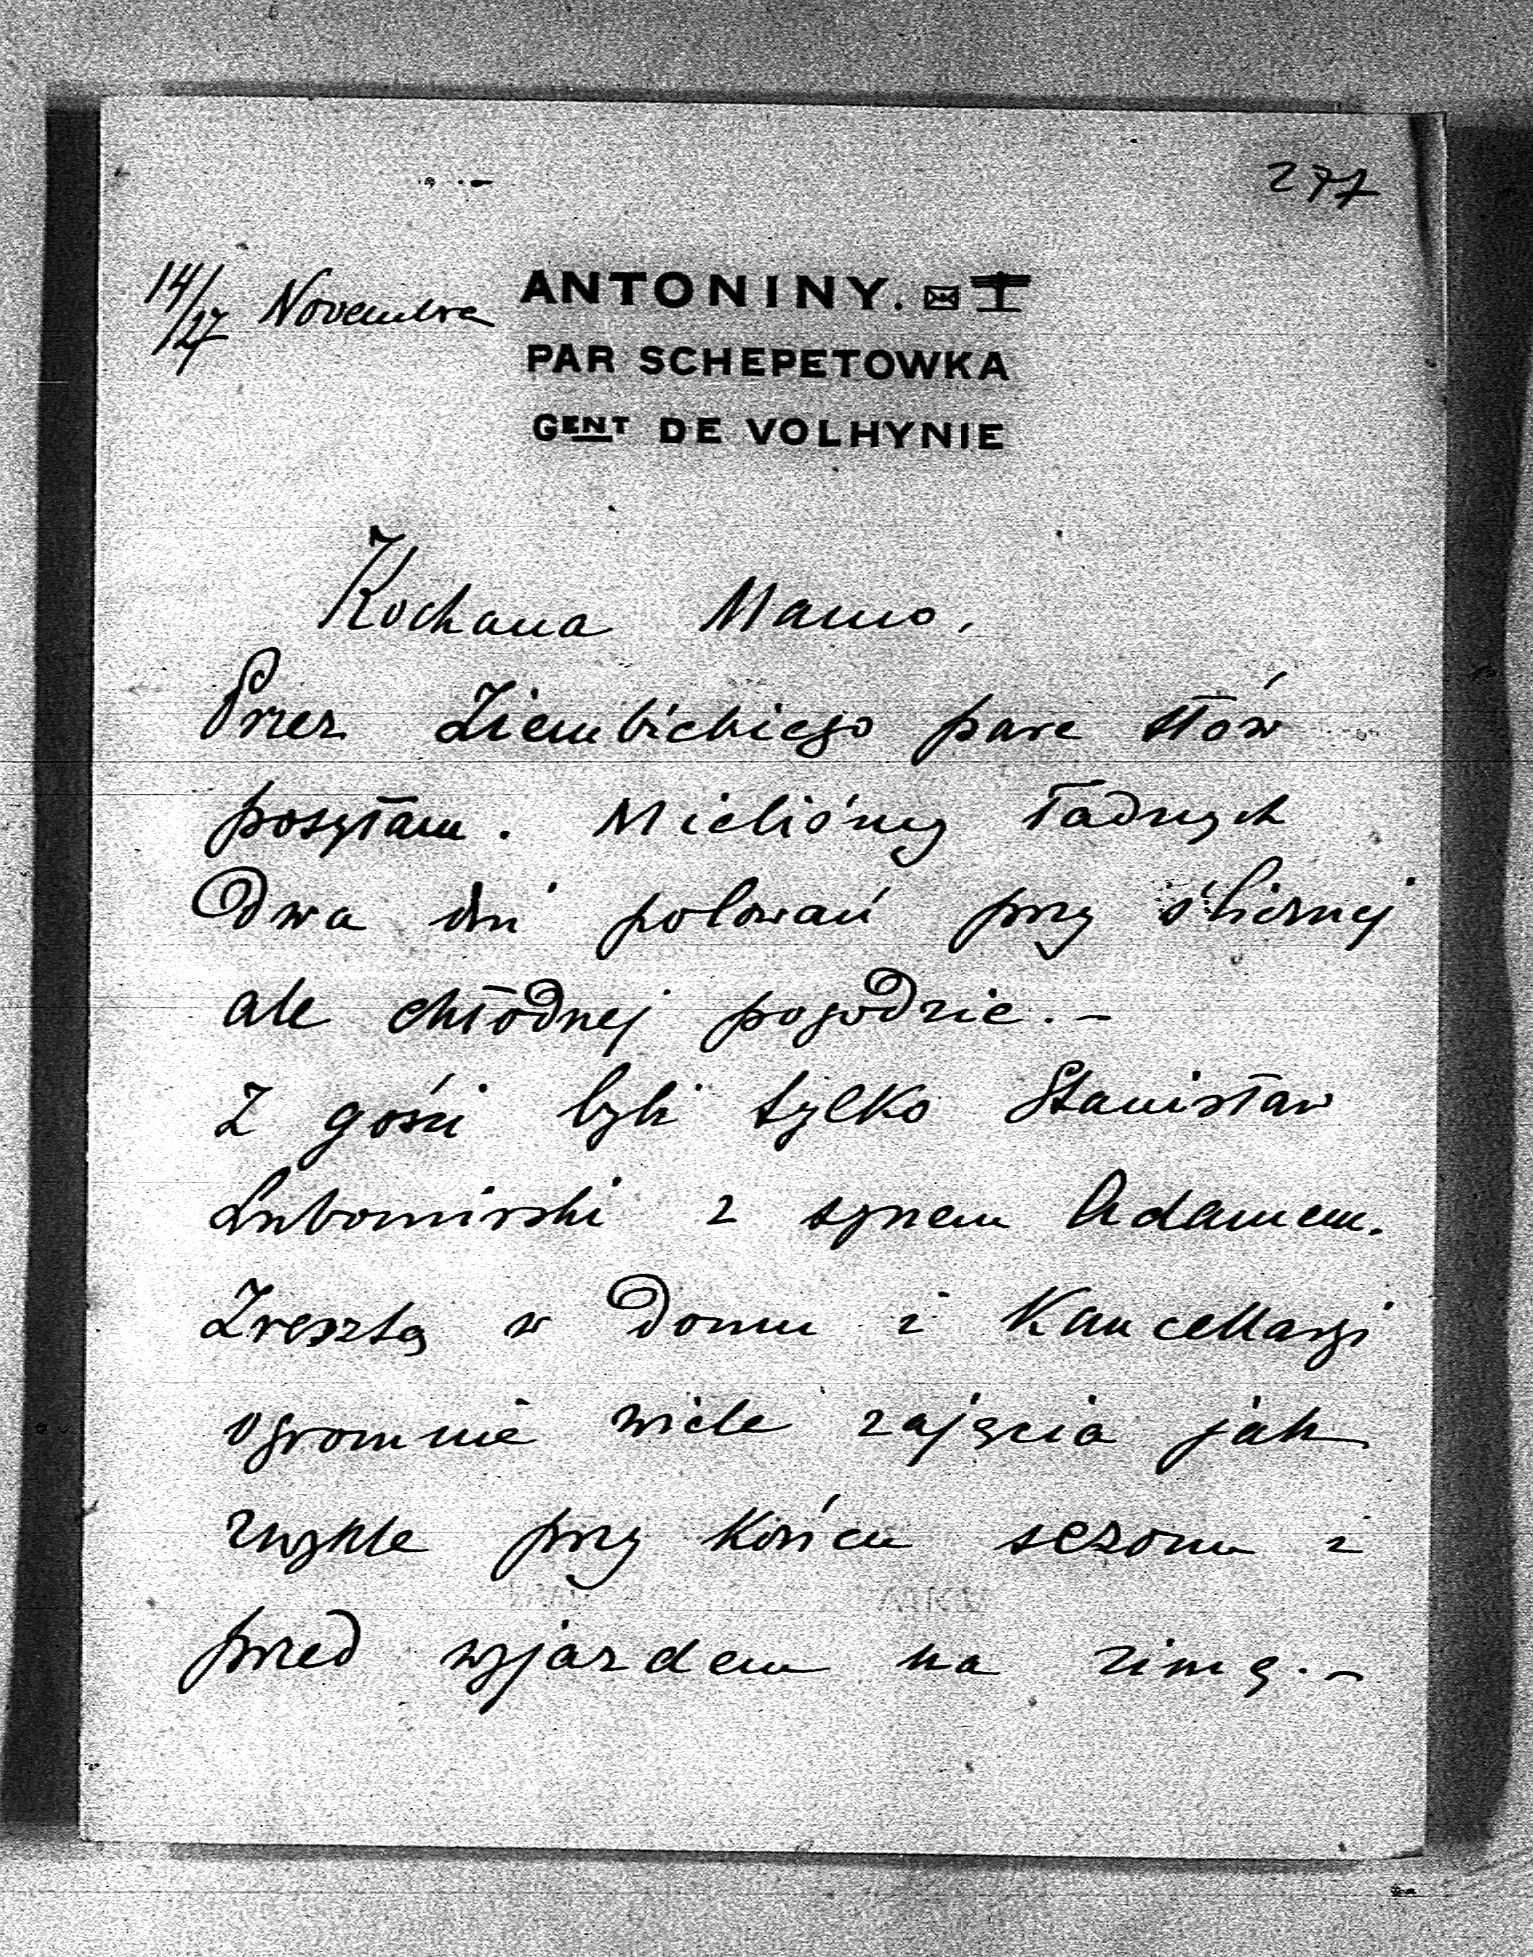 277
14/27 Novembra
ANTONINY.
PAR SCHEPETOWKA
GENT DE VOLHYNIE
Kochana Mamo,
Przez Ziembickiego parę słów
posyłam. Mieliśmy ładnych
Dwa dni polowań przy ślicznej
ale chłodnej pogodzie. -
Z gości byli tylko Stanisław
Lubomirski z synem Adamem.
Zresztą w Domu i Kancellaryi
ogromnie wiele zajęcia jak
zwykle przy końcu sezonu i
przed wyjazdem na zimę. -